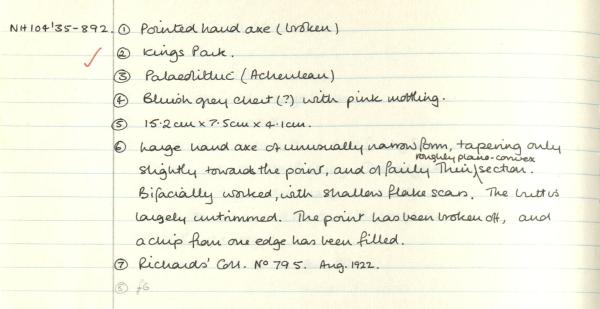 NH104'35-892. ① Pointed hand axe (broken)
② Kings Park.
③ Palaeolithic (Acheulean)
④ Bluish grey chert (?) with pink mottling.
⑤ 15.2cm x 7.5cm x 4.1cm.
⑥ Large hand axe of unusually narrow form, tapering only
slightly towards the point, and of fairly thin, roughly plano-convex section.
Bifacially worked, with shallow flake scars. The butt is
largely untrimmed. The point has been broken off, and
a chip from one edge has been filled.
⑦ Richards' Coll. No 795. Aug. 1922.
⑧ f6